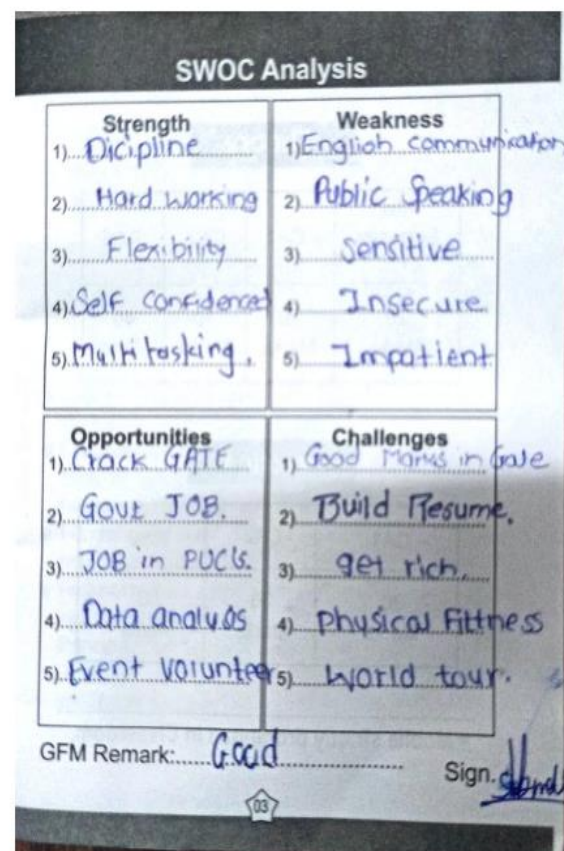 SWOC Analysis
Strength
1) Dicipline
2) Hard working
3) Flexibility
4) Self confidenced
5) Multitasking.
Weakness
1) English communication
2) Public Speaking
3) Sensitive
4) Insecure
5) Impatient
Opportunities
1) Crack GATE
2) Govt JOB.
3) JOB in
4) Data analysis
5) Event Volunteer
Challenges
1) Good Marks in Gate
2) Build Resume.
3) get rich.
4) Physical Fittness
5) World tour.
GFM Remark: Good
Sign.
03